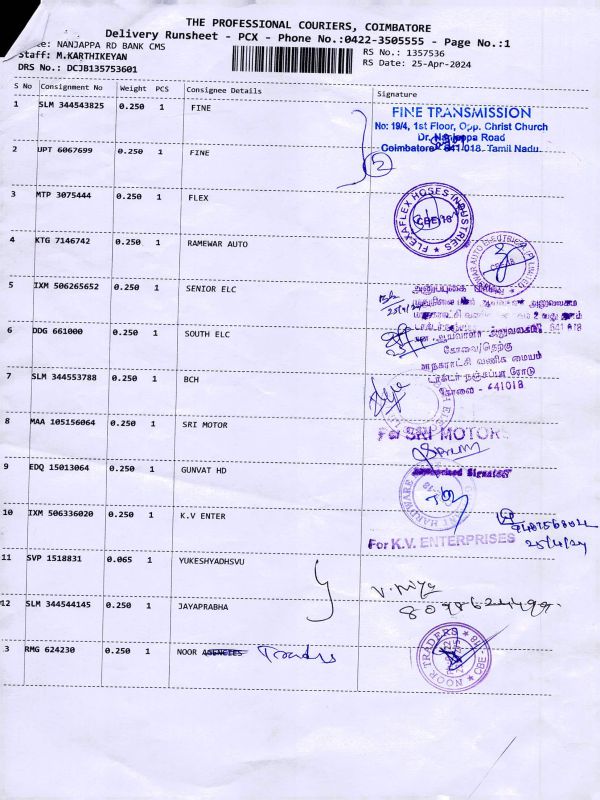 THE PROFESSIONAL COURIERS, COIMBATORE
Delivery Runsheet - PCX - Phone No.:0422-3505555 - Page No.:1
NANJAPPA RD BANK CMS
RS No.: 1357536
Staff: M.KARTHIKEYAN
RS Date: 25-Apr-2024
DRS No.: DCJB135753601
S No Consignment No Weight PCS Consignee Details Signature
1 SLM 344543825 0.250 1 FINE
FINE TRANSMISSION
No: 19/4, 1st Floor, Opp. Christ Church
Dr. Nanjappa Road
Coimbatore - 641 018. Tamil Nadu.
2 UPT 6067699 0.250 1 FINE
2
3 MTP 3075444 0.250 1 FLEX
FLEXAFLEX HOSES INDUSTRIES
CBE-18
4 KTG 7146742 0.250 1 RAMEWAR AUTO
CBE-18
5 IXM 506265652 0.250 1 SENIOR ELC
25/4/24
6 DDG 661000 0.250 1 SOUTH ELC
மாநகராட்சி வணிக மையம்
டாக்டர் நஞ்சப்பா ரோடு
கோவை - 641018
7 SLM 344553788 0.250 1 BCH
8 MAA 105156064 0.250 1 SRI MOTOR
For SRI MOTORS
Authorised Signatory
9 EDQ 15013064 0.250 1 GUNVAT HD
HARDWARE
10 IXM 506336020 0.250 1 K.V ENTER
For K.V. ENTERPRISES
25/4/24
11 SVP 1518831 0.065 1 YUKESHYADHSVU
V. Priya
12 SLM 344544145 0.250 1 JAYAPRABHA
13 RMG 624230 0.250 1 NOOR AGENCIES Traders
NOOR TRADERS
CBE-18